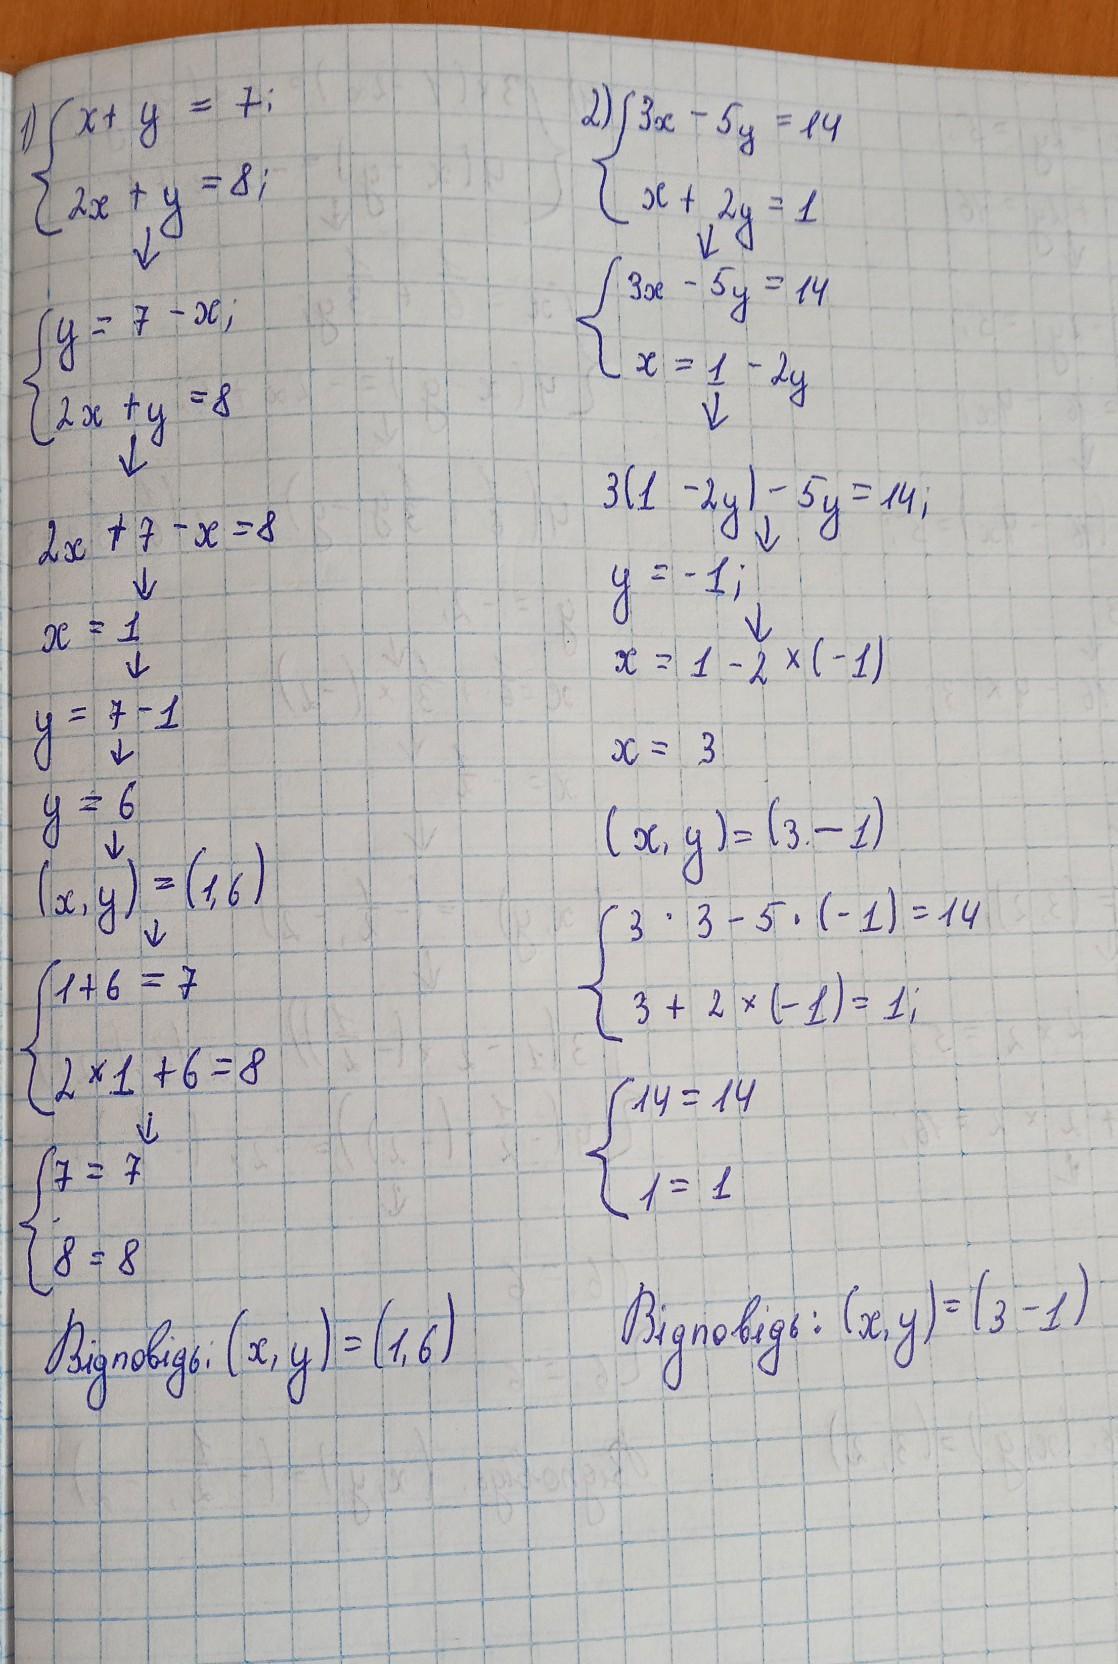 1) { x + y = 7;
2x + y = 8;
↓
{ y = 7 - x;
2x + y = 8
↓
2x + 7 - x = 8
↓
x = 1
↓
y = 7 - 1
↓
y = 6
↓
(x, y) = (1,6)
↓
{ 1 + 6 = 7
2 × 1 + 6 = 8
↓
{ 7 = 7
8 = 8
Відповідь: (x, y) = (1,6)
2) { 3x - 5y = 14
x + 2y = 1
↓
{ 3x - 5y = 14
x = 1 - 2y
↓
3(1 - 2y) - 5y = 14;
↓
y = -1;
↓
x = 1 - 2 × (-1)
x = 3
(x, y) = (3. - 1)
{ 3 · 3 - 5 · (-1) = 14
3 + 2 × (-1) = 1;
{ 14 = 14
1 = 1
Відповідь: (x, y) = (3 - 1)